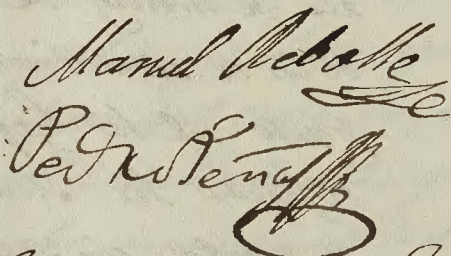 Manuel Rebolle
Pedro Peña